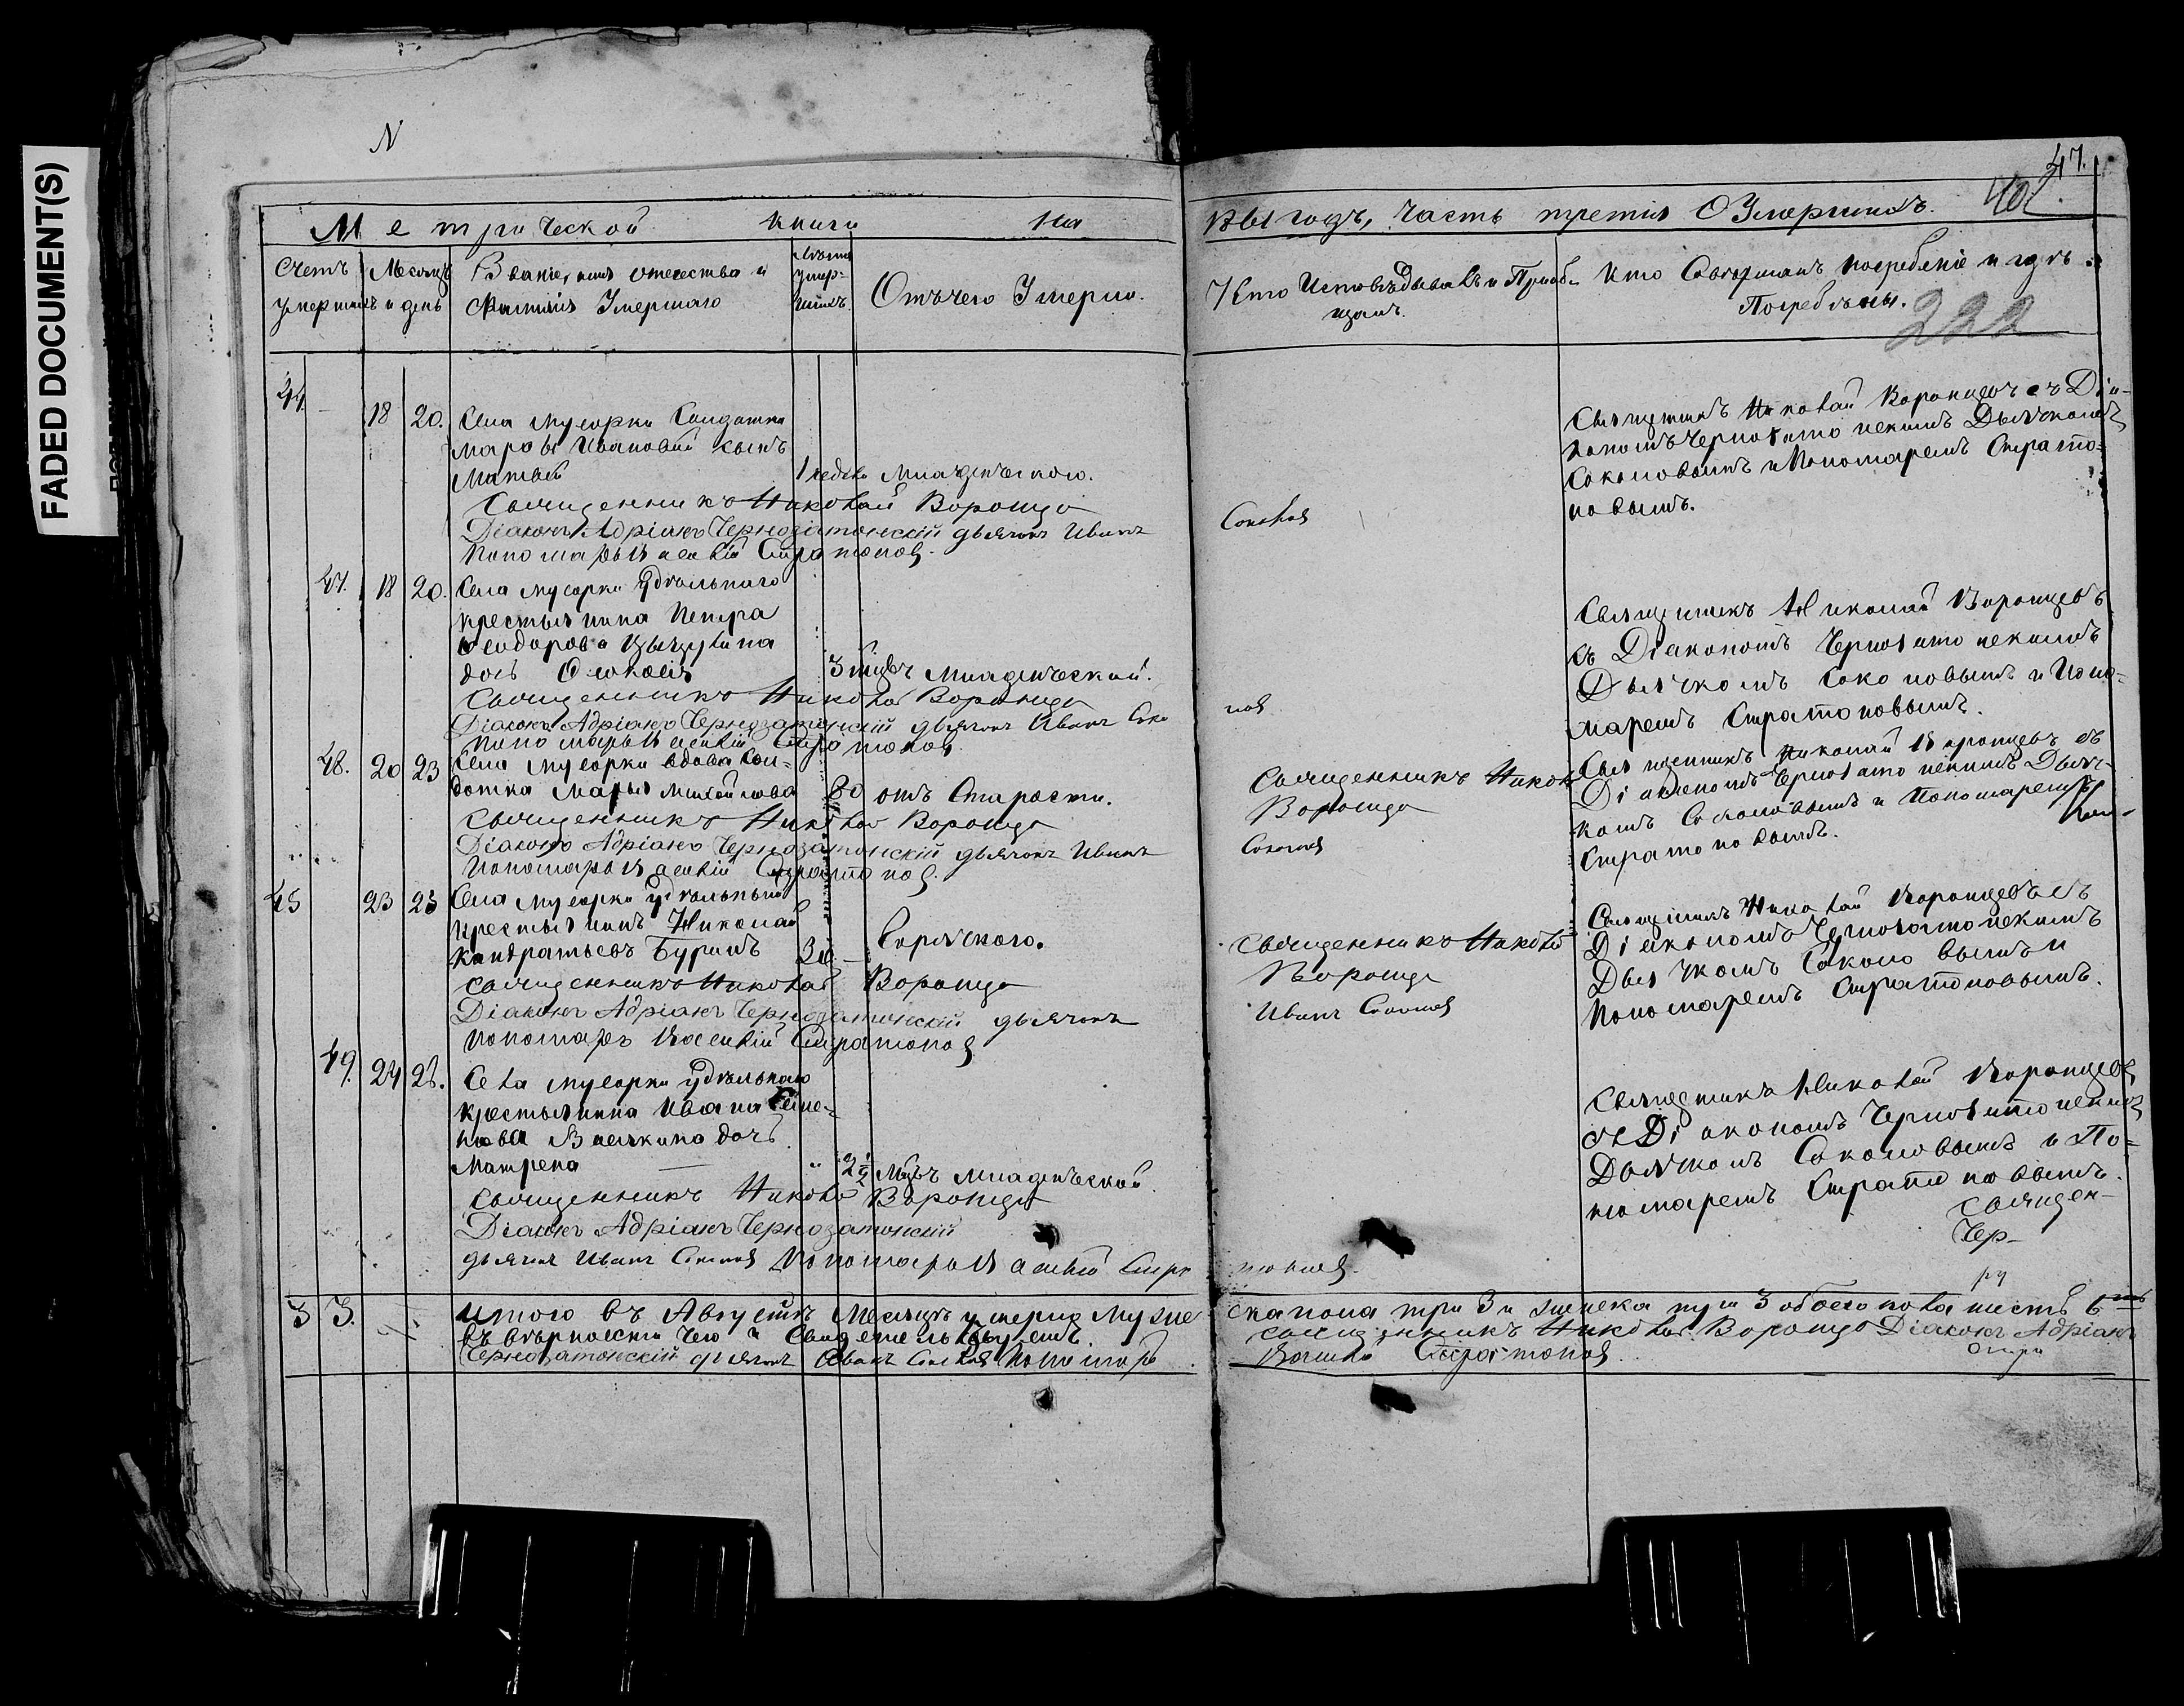 FADED DOCUMENT(S)
N
47.
402.
Метрической книги на 1861 годъ, часть третія О Умершихъ.
Счетъ умершихъ
Месяцъ и день
Званіе, имя отечество и Фамилія Умершаго
Лѣта умер-
шихъ
Отъ чего Умеръ.
Кто Исповѣдывалъ и Пріоб-
щалъ.
Кто Совершалъ погребеніе и гдѣ
Погребены.
222
44. 18 20. Села Мусорки Салдатки
Марьи Ивановой сынъ
Матвей 1 недель Младенческого.
Священникъ Николай Воронцо
Діаконъ Адріанъ Чернозатонскій дьячекъ Иванъ Соколов
Пономарь Василій Стратонов.
Священникъ Николай Воронцовъ съ Діа-
кономъ Чернозатонскимъ Дьячкомъ
Соколовымъ и Пономаремъ Страто-
новымъ.
47. 18 20. Села Мусорки Удѣльнаго
крестьянина Петра
Ѳеодорова
дочь 3 Младенческой.
Священникъ Николай Воронцо
Діаконъ Адріанъ Чернозатонскій дьячекъ Иванъ Соко лов
Пономарь Василій Стратонов
Священникъ Николай Воронцовъ
съ Діакономъ Чернозатонскимъ
Дьячкомъ Соколовымъ и Поно-
маремъ Стратоновымъ.
48. 20 23 Села Мусорки вдова Сол-
датка Марья Михайлова 80 отъ Старости.
Священникъ Николай Воронцо
Діаконъ Адріанъ Чернозатонскій дьячекъ Иванъ
Пономарь Василій Стратонов.
Священникъ Никол
Воронцо
Соколов
Священникъ Николай Воронцовъ съ
Діакономъ Чернозатонскимъ Дьяч-
комъ Соколовымъ и Пономаремъ
Стратоновымъ.
45 23 25 Села Мусорки Удѣльный
крестьянинъ Николай
Кондратьевъ Буринъ Горячкого.
Священникъ Николай Воронцо
Діаконъ Адріанъ Чернозатонскій дьячекъ
Пономарь Василій Стратонов
Священникъ Николай
Воронцо
Иванъ Соколов
Священникъ Николай Воронцовъ съ
Діакономъ Чернозатонскимъ
Дьячкомъ Соколовымъ и
Пономаремъ Стратоновымъ.
49. 24 26. Села Мусорки Удѣльнаго
крестьянина Ивана Семе-
нова дочь
Матрена 2 1/2 Мцъ Младенческой.
Священникъ Николай Воронцо
Діаконъ Адріанъ Чернозатонскій
дьячекъ Иванъ Соколов Пономарь Василій Стратонов.
Священникъ Николай Воронцовъ
съ Діакономъ Чернозатонскимъ
Дьячкомъ Соколовымъ и По-
номаремъ Стратоновымъ.
Священ-
Чер-
ру
3 3. Итого въ Августѣ Месяцѣ умерло Мужескапола три 3 и женска три 3 обоего пола шесть 6
въ вѣрности чего и Свидетельствуемъ. Священникъ Николай Воронцо Діаконъ Адріанъ
Чернозатонскій дьячекъ Иванъ Соколов Пономарь Василій Стратонов.